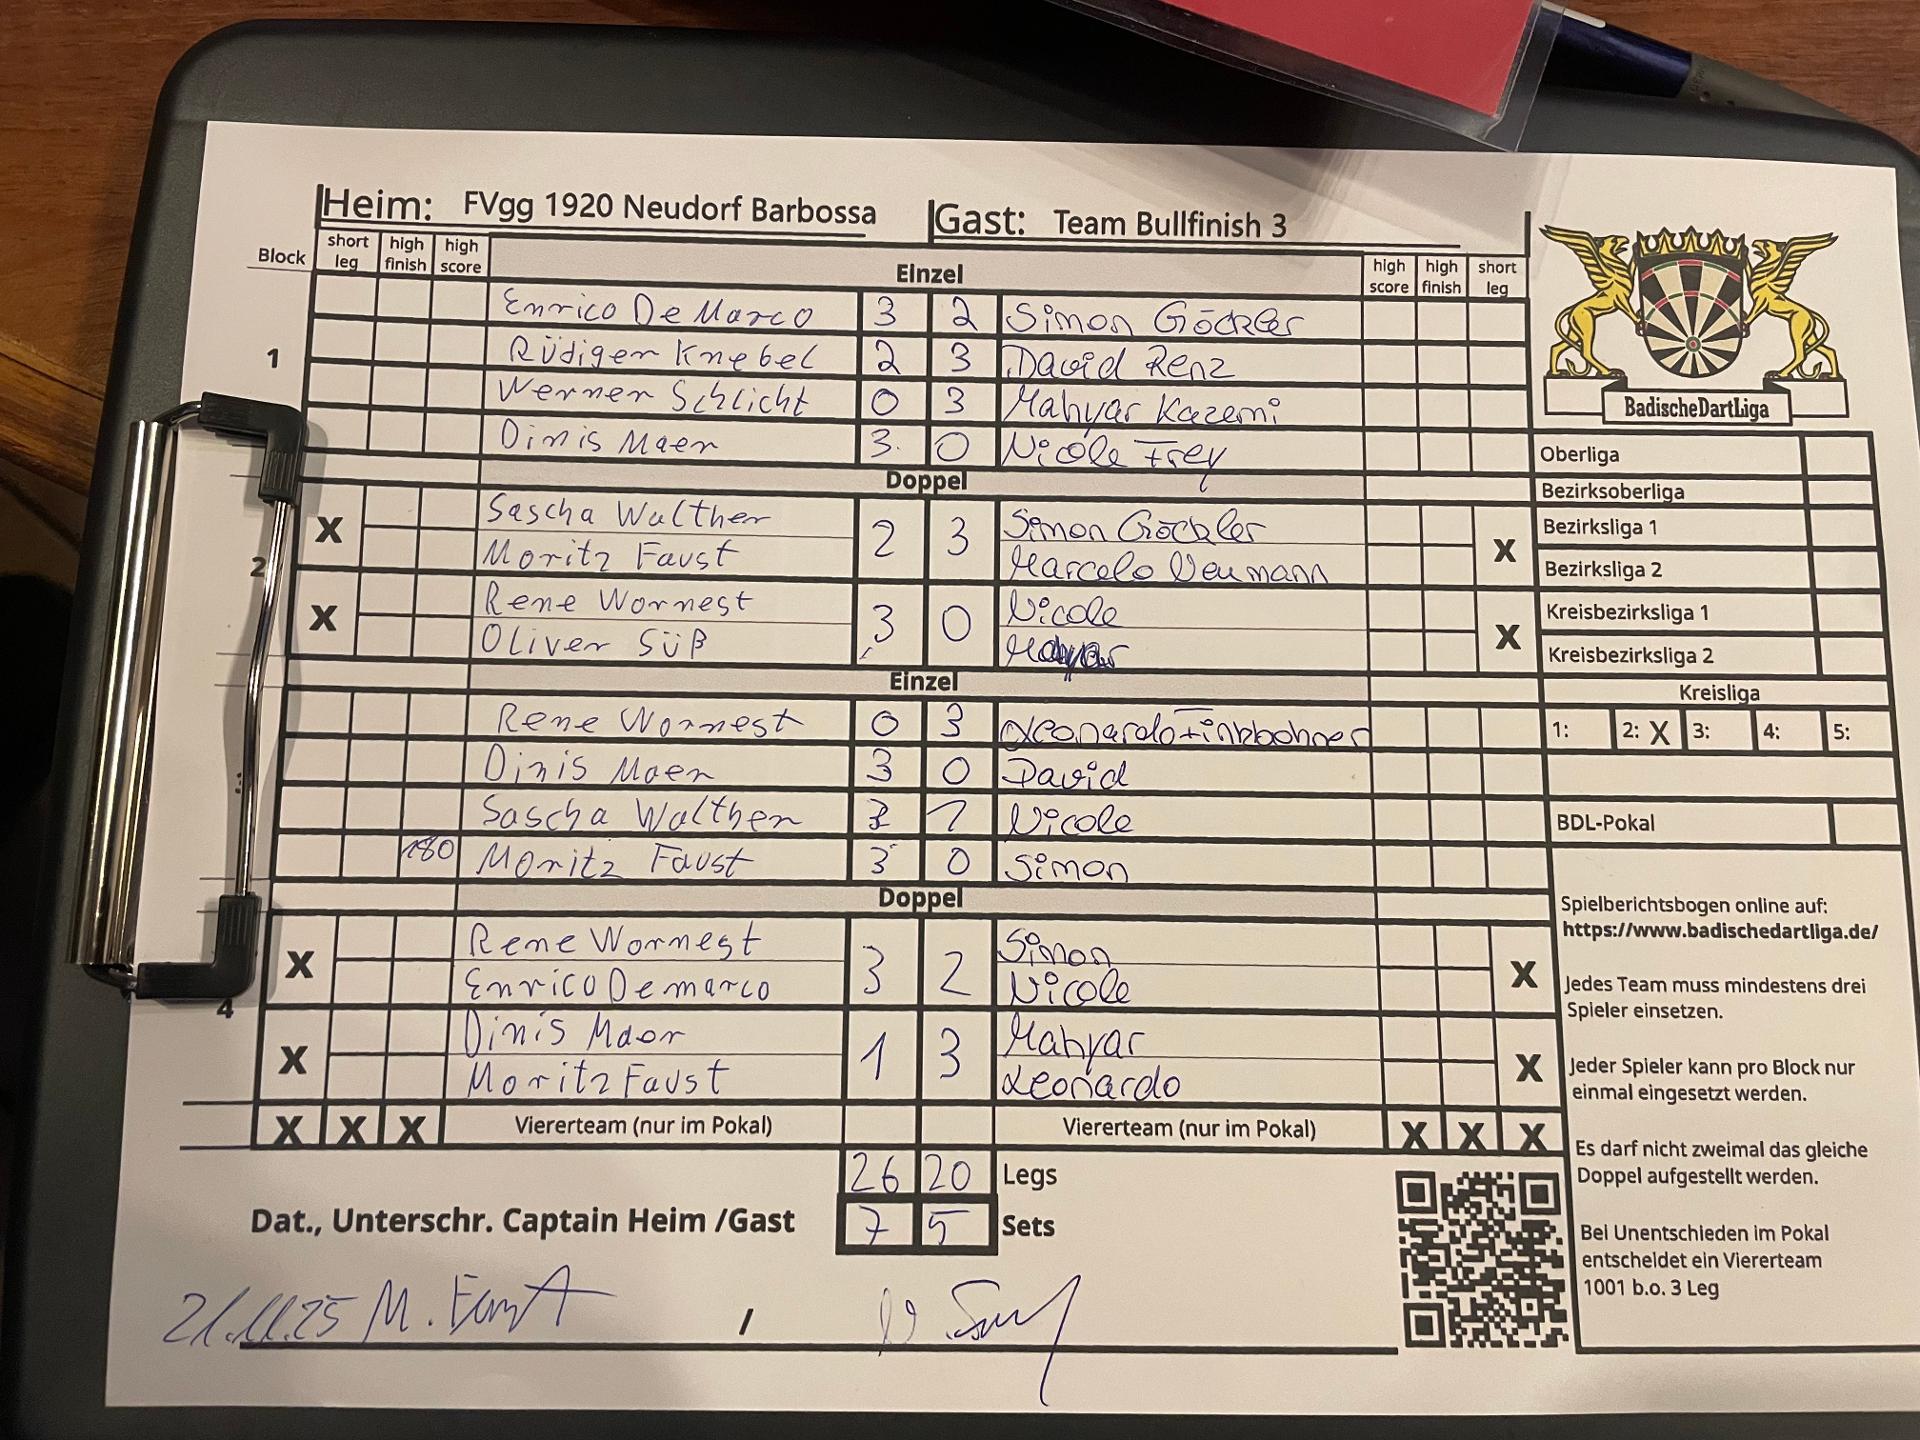 Heim: FVgg 1920 Neudorf Barbossa Gast: Team Bullfinish 3
Block short leg high finish high score Einzel high score high finish short leg
1
Enrico De Marco 3 2 Simon Göckler
Rüdiger Knebel 2 3 David Renz
Werner Schlicht 0 3 Mahyar Kazemi
Dinis Maer 3 0 Nicole Frey
Doppel
2
X Sascha Walther 2 3 Simon Göckler X
Moritz Faust Marcelo Neumann
X Rene Wornest 3 0 Nicole X
Oliver Süß Mahyar
Einzel
Rene Wornest 0 3 Leonardo
Dinis Maer 3 0 David
Sascha Walther 3 1 Nicole
180 Moritz Faust 3 0 Simon
Doppel
4
X Rene Wornest 3 2 Simon X
Enrico Demarco Nicole
X Dinis Maer 1 3 Mahyar X
Moritz Faust Leonardo
X X X Viererteam (nur im Pokal) Viererteam (nur im Pokal) X X X
26 20 Legs
Dat., Unterschr. Captain Heim /Gast 7 5 Sets
21.11.25 M. Faust /
BadischeDartLiga
Oberliga
Bezirksoberliga
Bezirksliga 1
Bezirksliga 2
Kreisbezirksliga 1
Kreisbezirksliga 2
Kreisliga
1: 2: X 3: 4: 5:
BDL-Pokal
Spielberichtsbogen online auf:
https://www.badischedartliga.de/
Jedes Team muss mindestens drei
Spieler einsetzen.
Jeder Spieler kann pro Block nur
einmal eingesetzt werden.
Es darf nicht zweimal das gleiche
Doppel aufgestellt werden.
Bei Unentschieden im Pokal
entscheidet ein Viererteam
1001 b.o. 3 Leg